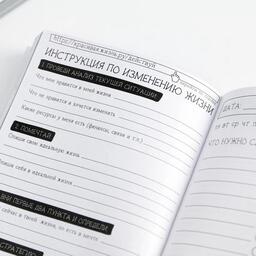 https://красивая.жизнь.ру/действуй
ИНСТРУКЦИЯ ПО ИЗМЕНЕНИЮ ЖИЗНИ
1. ПРОВЕДИ АНАЛИЗ ТЕКУЩЕЙ СИТУАЦИИ
Что мне нравится в моей жизни
Что не нравится и хочется изменить
Какие ресурсы у меня есть (финансы, связи и т.п.)
2. ПОМЕЧТАЙ
Опиши свою идеальную жизнь
Опиши себя в идеальной жизни
ПЕРВЫЕ ДВА ПУНКТА И ОПРЕДЕЛИ
сейчас в твоей жизни, но есть в мечте
СТРАТЕГИ
ДАТА
вт ср чт
ЧТО НУЖНО С